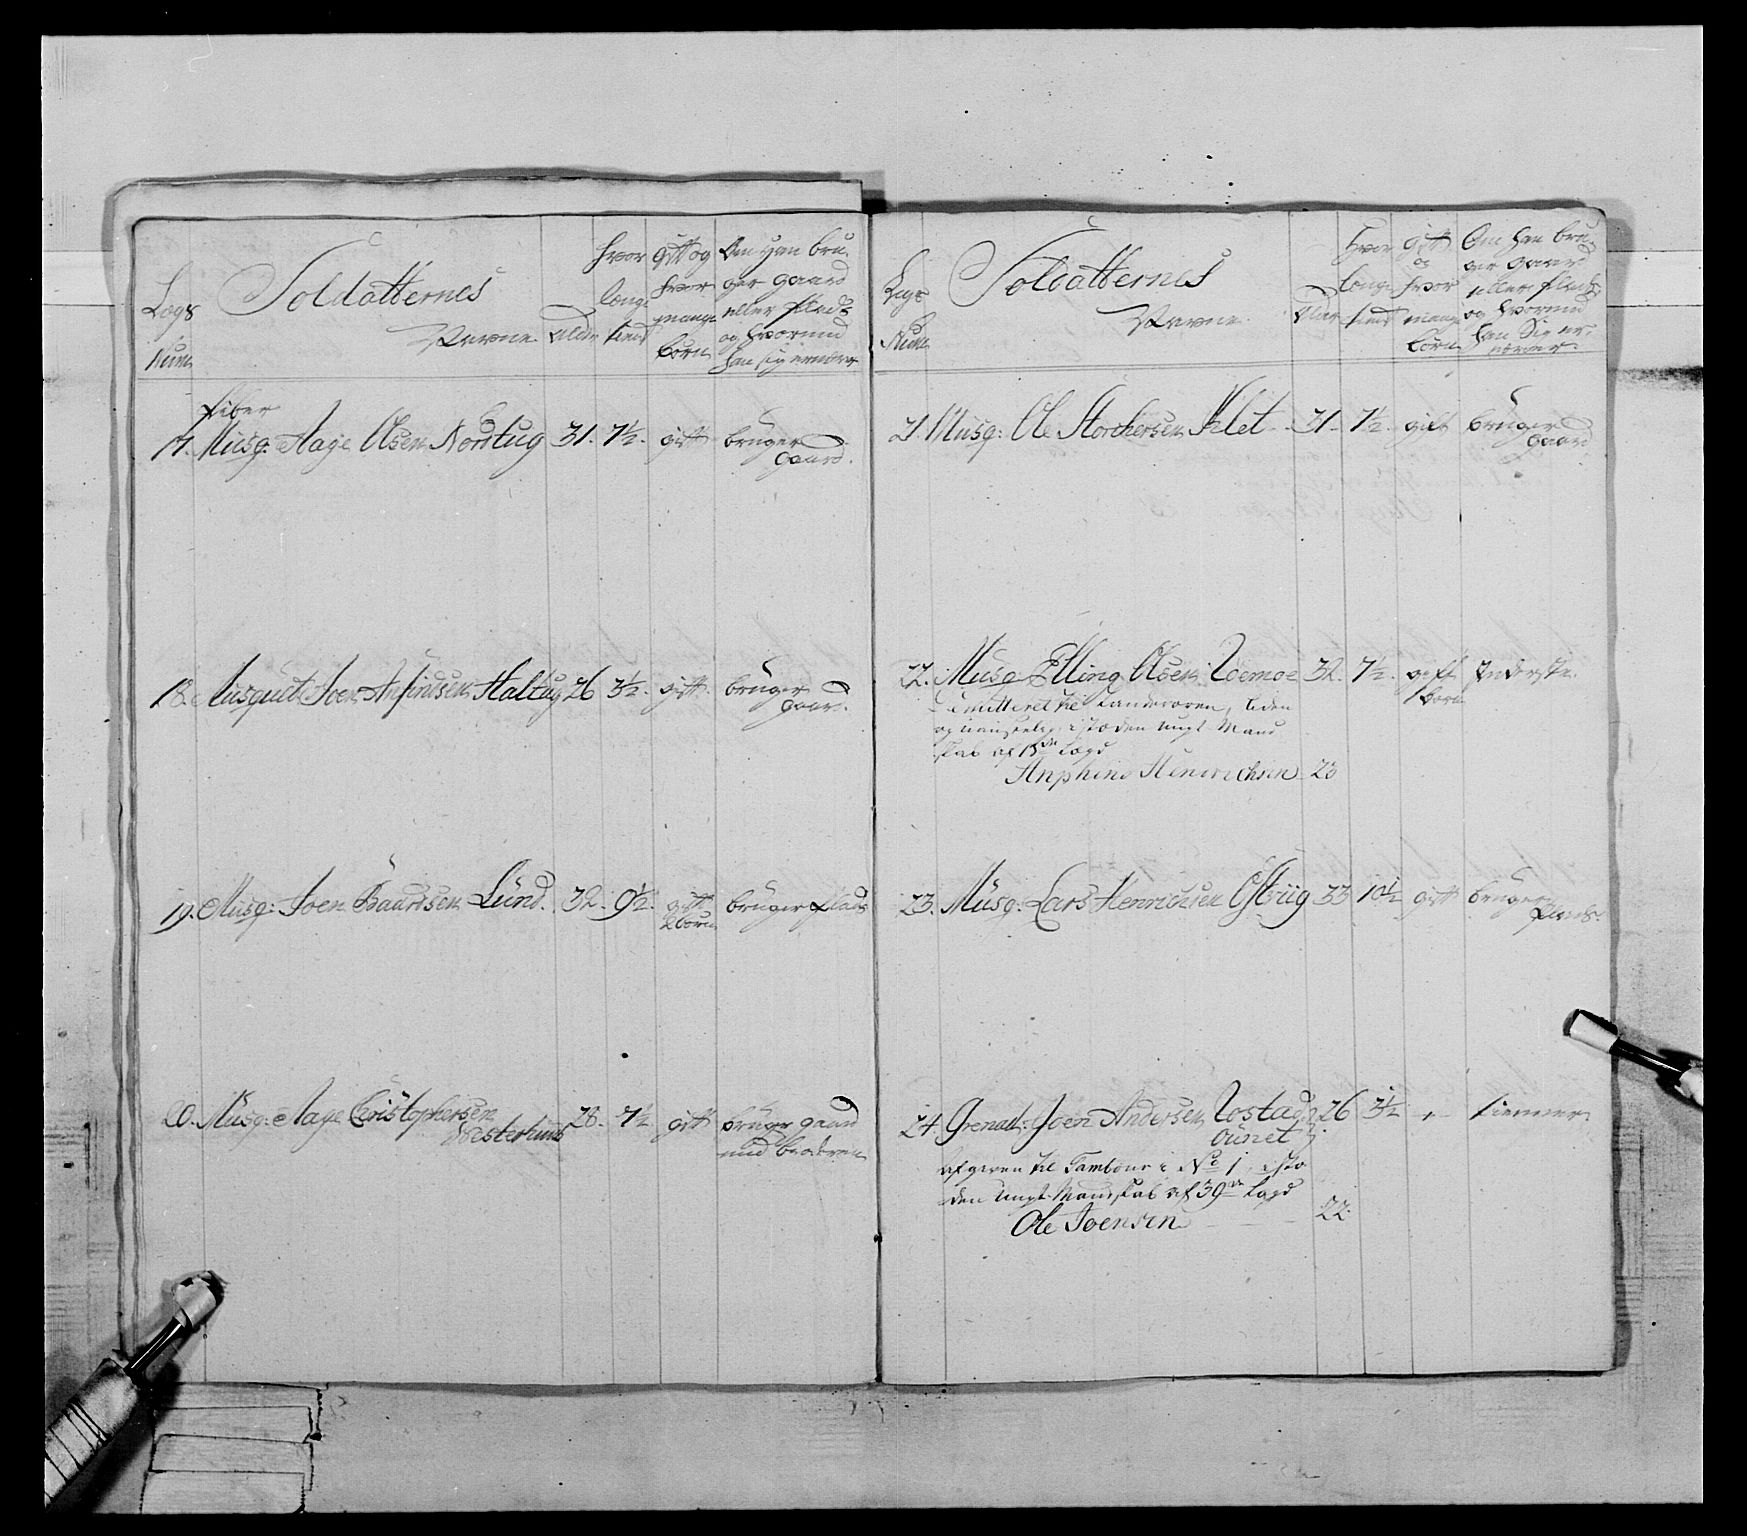 Legs Num
Soldatternes Navne
Alder
hvor længe tient
gift og hvor mange børn
Om Han bruger gaard eller Plads og hvormed han sig ernærer
Piber
17. Musq: Aage Olsen Nordtug 31. 7½. gift bruger gaard.
18. Musquet Iver Anfindsen Haltug 26 3½. gift. bruger gaard.
19. Musq: Joen Baardsen Lund. 32. 9½. gift 2 børn bruger plads
20. Musq: Aage Christophersen Westerhuus 28. 7½ gift bruger gaard med broderen
Legs Num
Soldatternes Navne
Alder
hvor længe tient
gift og hvor mange børn
Om han bruger gaard eller plads og hvormed han Sig ernærer.
21. Musq: Ole Storchersen Klet 31. 7½. gift bruger gaard
22. Musq Elling Olsen Moemoe 32. 7½. gift børn Inderste.
Demitteret til Landeværen, liden
og uanseelig, i stæden ungt Mand
skab af 15de Lægd
Anphind Henrichsen 23
23. Musq: Lars Henrichsen Østviig 33 10½ gift bruger Plads.
24. Grenad: Joen Andersen Rostad aunet 26 3½ tienner
afgiven til Tambour i No 1, i stæ
den ungt Mandskab af 39de Lægd
Ole Joensen 22.